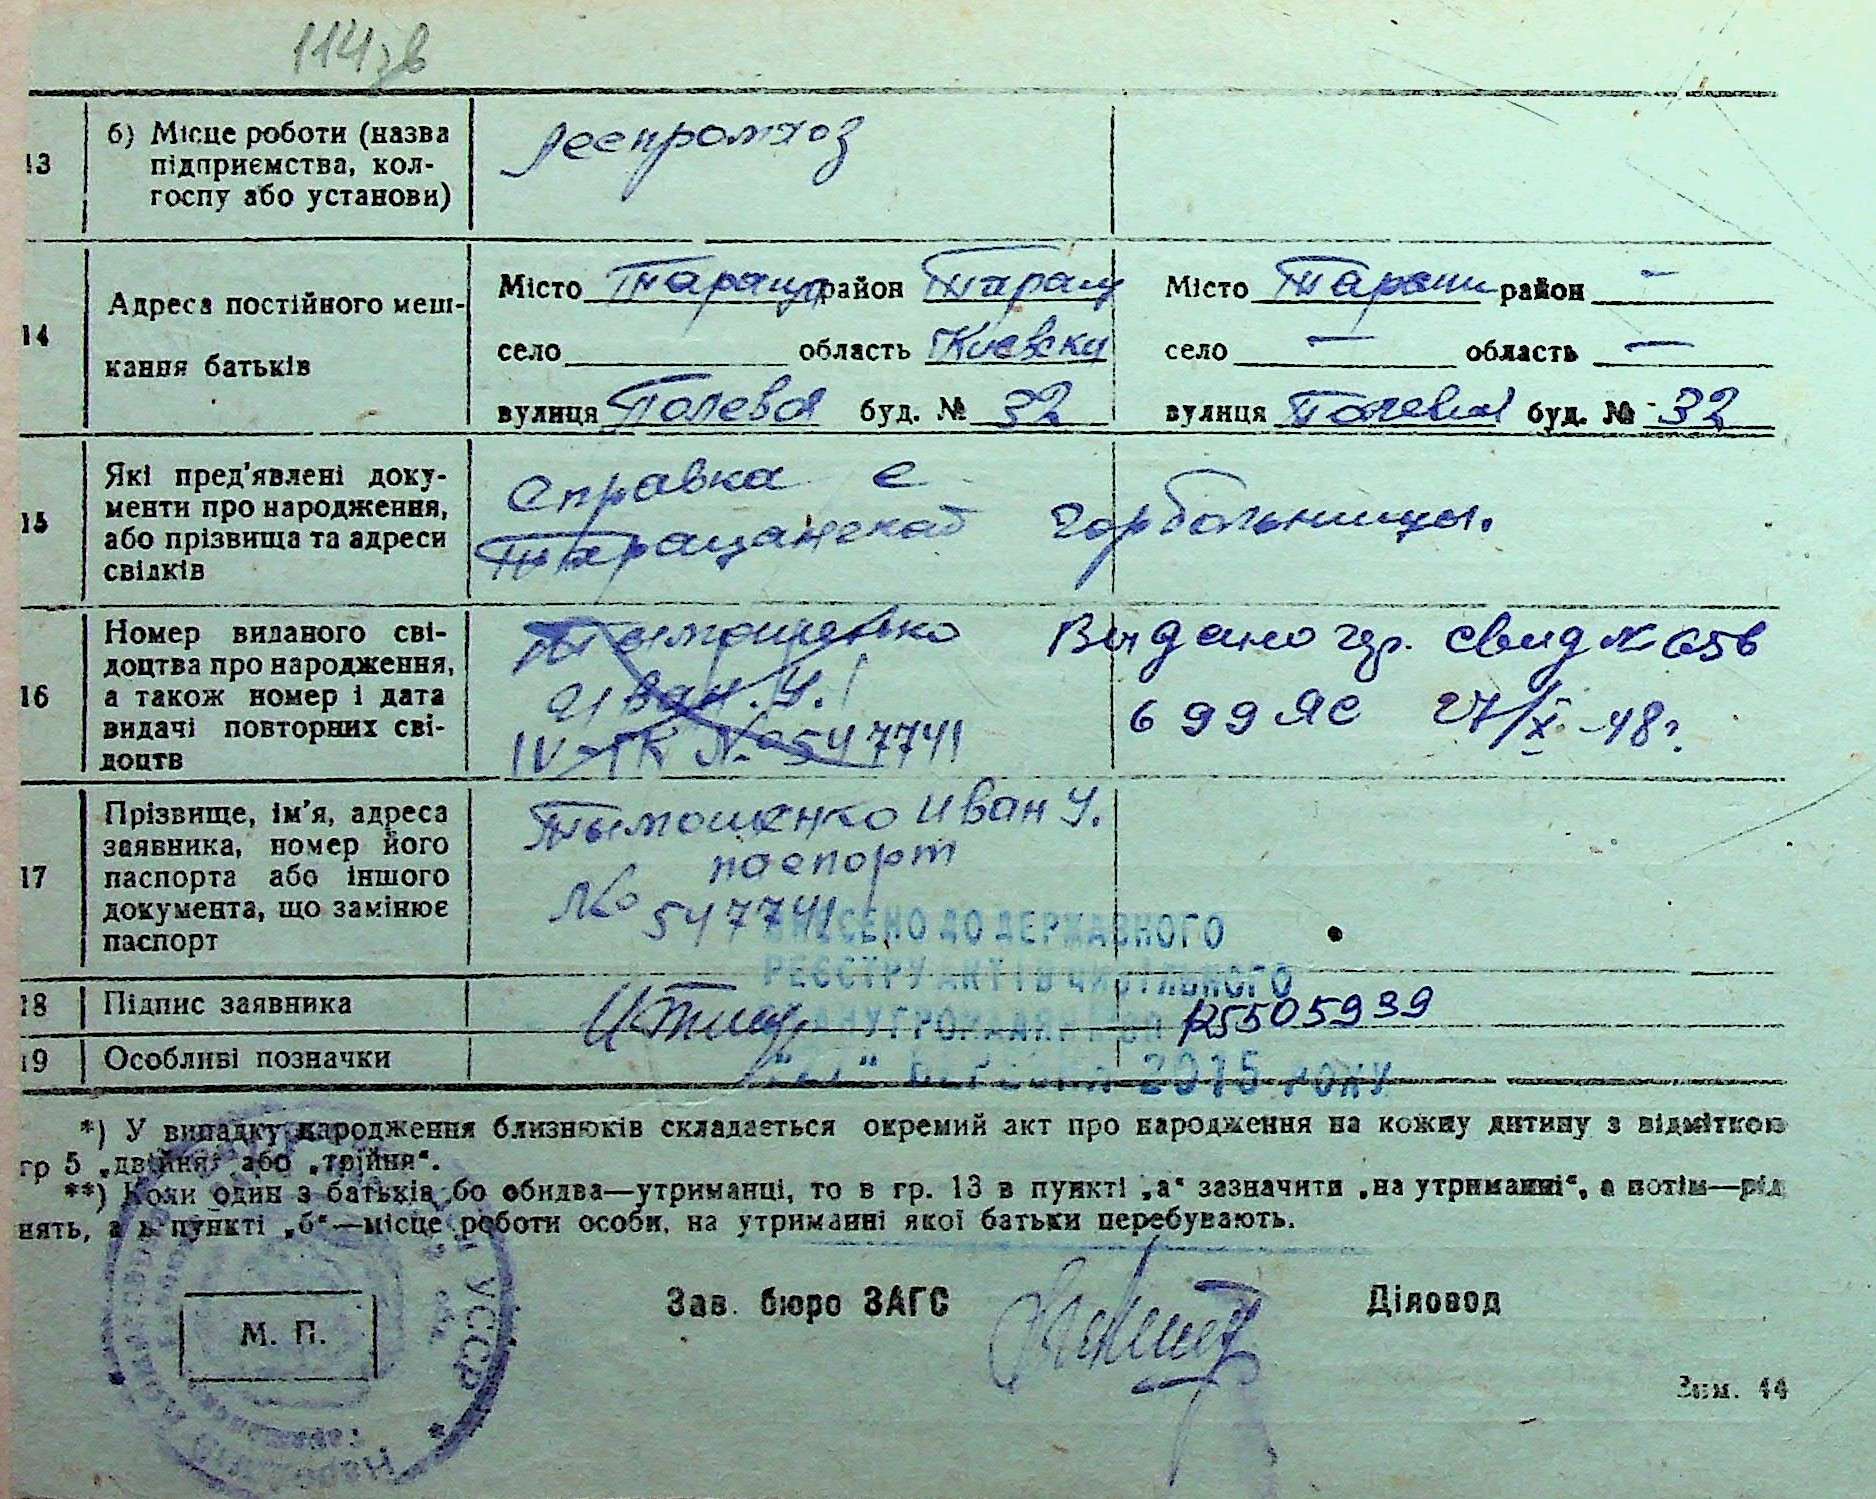 114 зв
13 б) Місце роботи (назва
підприємства, кол-
госпу або установи)
Леспромхоз
14 Адреса постійного меш-
кання батьків
Місто Тараща район Таращ
село область Киевску
вулиця Полева буд. № 32
Місто Таращи район —
село — область —
вулиця Полевая буд. № 32
15 Які пред'явлені доку-
менти про народження,
або прізвища та адреси
свідків
Справка с
Таращанской горбольницы.
16 Номер виданого сві-
доцтва про народження,
а також номер і дата
видачі повторних сві-
доцтв
Тымошенко
Иван. У.
IV-ТК № 547741
Выдано гр. свид № 656
699 ЯС 27/X-48г.
17 Прізвище, ім'я, адреса
заявника, номер його
паспорта або іншого
документа, що замінює
паспорт
Тымошенко Иван У.
паспорт
№ 547741
ВНЕСЕНО ДО ДЕРЖАВНОГО
РЕЄСТРУ АКТІВ ЦИВІЛЬНОГО
СТАНУ ГРОМАДЯН
БЕРЕЗНЯ 2015 РОКУ
18 Підпис заявника
И Тим
25505939
19 Особливі позначки
*) У випадку народження близнюків складається окремий акт про народження на кожну дитину з відміткою
гр 5 „двійня“ або „трійня“.
**) Коли один з батьків бо обидва—утриманці, то в гр. 13 в пункті „а“ зазначити „на утриманні“, а потім—рід
нять, а в пункті „б“—місце роботи особи, на утриманні якої батьки перебувають.
Зав. бюро ЗАГС
Діловод
М. П.
УССР
Зам. 44